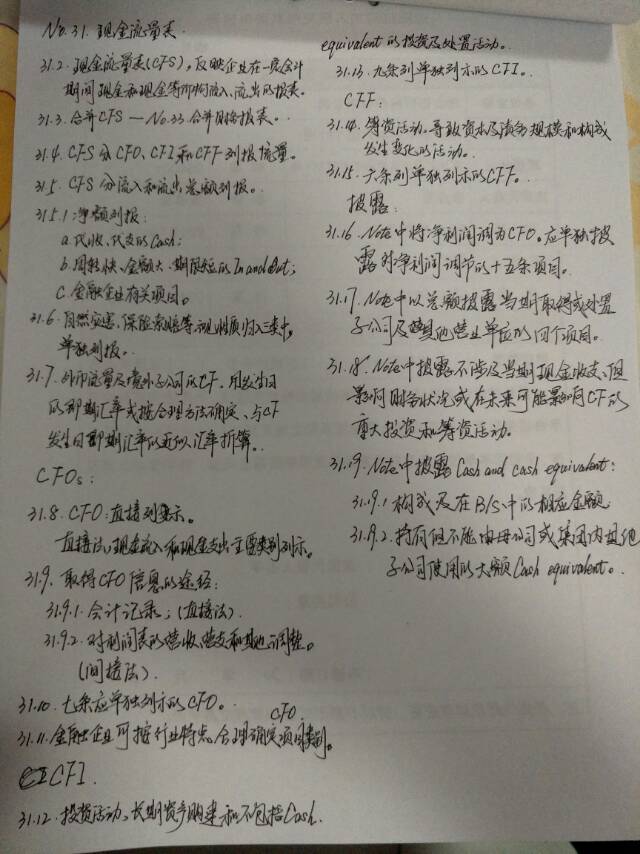 No.31. 现金流量表.
31.2. 现金流量表(CFS), 反映企业在一定会计
期间现金和现金等价物流入、流出的报表.
31.3. 合并CFS — No.33. 合并财务报表.
31.4. CFS分CFO、CFI和CFF列报流量.
31.5. CFS分流入和流出总额列报.
31.5.1 净额列报:
a. 代收、代支的Cash;
b. 周转快、金额大、期限短的In and Out;
c. 金融企业有关项目.
31.6. 自然灾害、保险索赔等, 视性质归入三类中,
单独列报.
31.7. 外币流量及境外子公司的CF. 用发生日
的即期汇率或按合理方法确定、与CF
发生日即期汇率的近似汇率折算.
CFOs:
31.8. CFO: 直接列示.
直接法: 现金流入和现金支出主要类别列示.
31.9. 取得CFO信息的途径:
31.9.1. 会计记录; (直接法).
31.9.2. 对利润表的营收、营支和其他调整.
(间接法).
31.10. 七条应单独列示的CFO.
31.11. 金融企业可按行业特点, 合理确定CFO项目类别.
CFI.
31.12. 投资活动、长期资产购建和不包括Cash.
equivalent的投资及处置活动.
31.13. 九条列单独列示的CFI.
CFF:
31.14. 筹资活动. 导致资本及债务规模和构成
发生变化的活动.
31.15. 六条列单独列示的CFF.
披露:
31.16. Note中将净利润调为CFO. 应单独披
露对净利润调节的十五条项目.
31.17. Note中以总额披露当期取得或处置
子公司及其他营业单位的四个项目.
31.18. Note中披露不涉及当期现金收支、但
影响财务状况或在未来可能影响CF的
重大投资和筹资活动.
31.19. Note中披露Cash and cash equivalent:
31.9.1 构成及在B/S中的相应金额
31.9.2. 持有但不能由母公司或集团内其他
子公司使用的大额Cash equivalent.